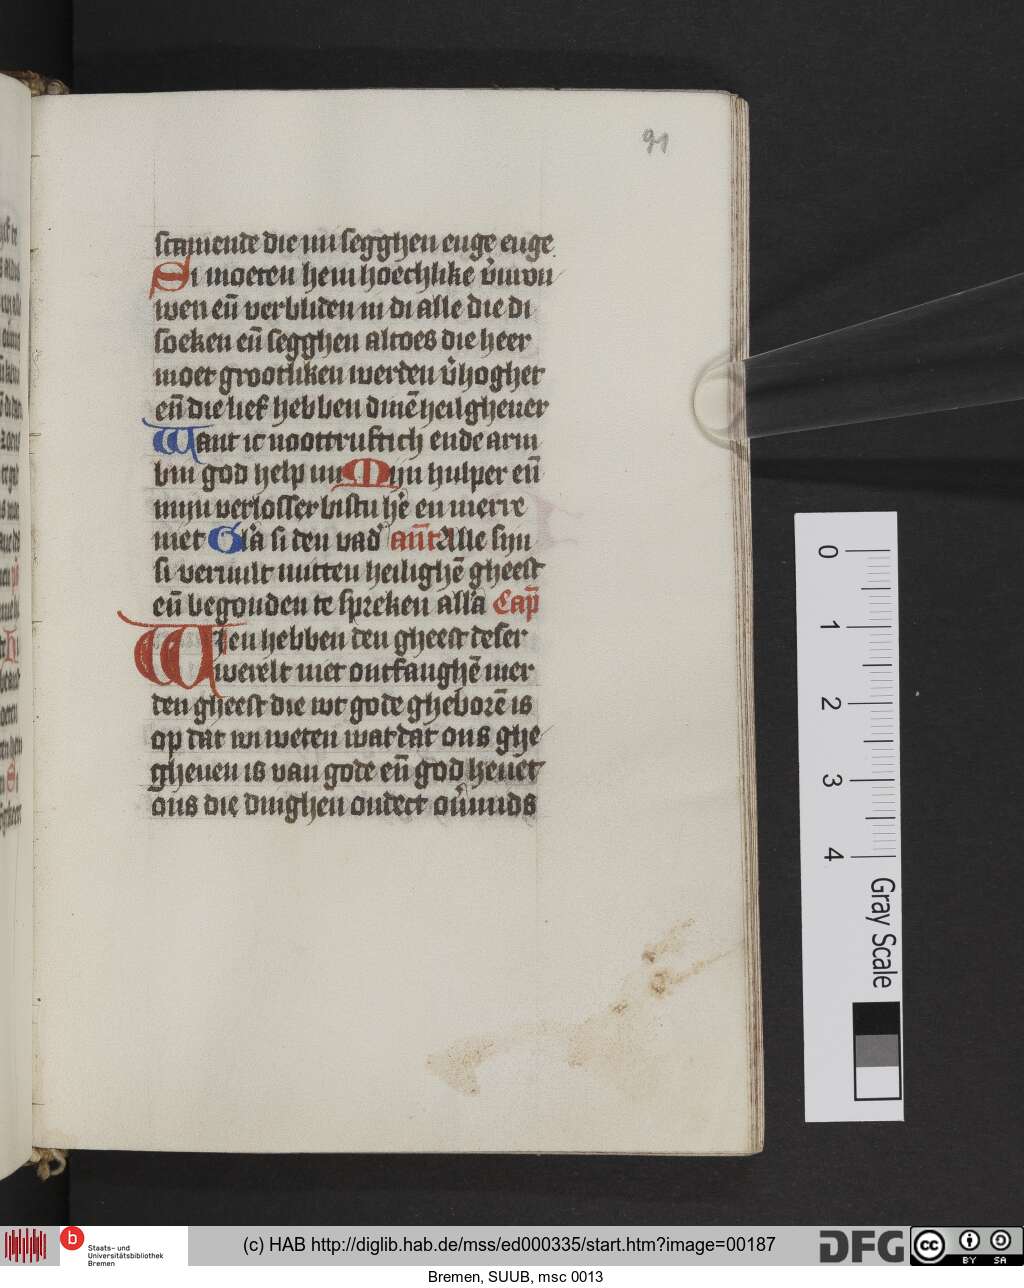 91
scamende die mi segghen euge euge
Si moeten hem hoechlike v̉urou
wen en̄ verbliden in di alle die di
soeken en̄ segghen altoes die heer
moet grootliken werden v̉hoghet
en̄ die lief hebben dinē heilgheuer
Want ic noottruftich ende arm
bin god help mi Mijn hulper en̄
mijn verlosser bistu he en merre
niet Gla si den vad ant̄ Alle sijn
si veruult mitten heilighē gheest
en̄ begonden te spreken alla Cap̄
Wien hebben den gheest deser
werelt niet ontfanghē mer
den gheest die wt gode gheborē is
op dat wi weten wat dat ons ghe
gheuen is van gode en̄ god heuet
ons die dinghen ondect ou̓mids
0
1
2
3
4
Gray Scale
b
Staats- und
Universitätsbibliothek
Bremen
(c) HAB http://diglib.hab.de/mss/ed000335/start.htm?image=00187
DFG
cc
BY SA
Bremen, SUUB, msc 0013